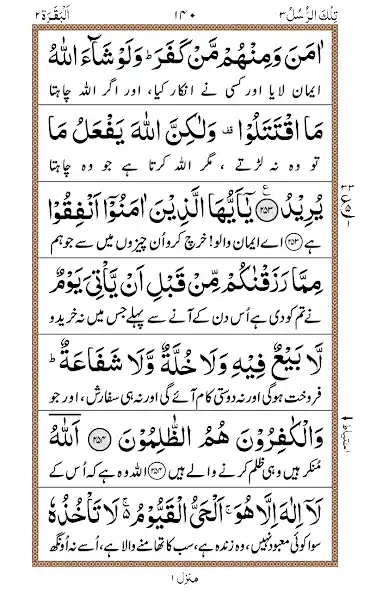 تِلْكَ الرُّسُلُ ٣ ١٤٠ اَلْبَقَرَة ٢
اٰمَنَ وَمِنْهُمْ مَّنْ كَفَرَ ؕ وَلَوْ شَآءَ اللّٰهُ
ایمان لایا اور کسی نے انکار کیا، اور اگر اللہ چاہتا
مَا اقْتَتَلُوْا ۫ وَلٰكِنَّ اللّٰهَ يَفْعَلُ مَا
تو وہ نہ لڑتے ، مگر اللہ کرتا ہے جو وہ چاہتا
يُرِيْدُ ﴿٢٥٣﴾ يٰۤاَيُّهَا الَّذِيْنَ اٰمَنُوْۤا اَنْفِقُوْا
ہے ﴿٢٥٣﴾ اے ایمان والو! خرچ کرو اُن چیزوں میں سے جو ہم
مِمَّا رَزَقْنٰكُمْ مِّنْ قَبْلِ اَنْ يَّاْتِيَ يَوْمٌ
نے تم کو دی ہے اُس دن کے آنے سے پہلے جس میں نہ خرید و
لَّا بَيْعٌ فِيْهِ وَلَا خُلَّةٌ وَّلَا شَفَاعَةٌ ؕ
فروخت ہوگی اور نہ دوستی کام آئے گی اور نہ ہی سفارش، اور جو
وَالْكٰفِرُوْنَ هُمُ الظّٰلِمُوْنَ ﴿٢٥٤﴾ اَللّٰهُ
مُنکر ہیں وہی ظلم کرنے والے ہیں ﴿٢٥٤﴾ اللہ وہ ہے کہ اُس کے
لَاۤ اِلٰهَ اِلَّا هُوَ ۚ اَلْحَيُّ الْقَيُّوْمُ ۚ لَا تَاْخُذُهٗ
سوا کوئی معبود نہیں، وہ زندہ ہے، سب کا تھامنے والا ہے، اُسے نہ اُونگھ
منزل ١